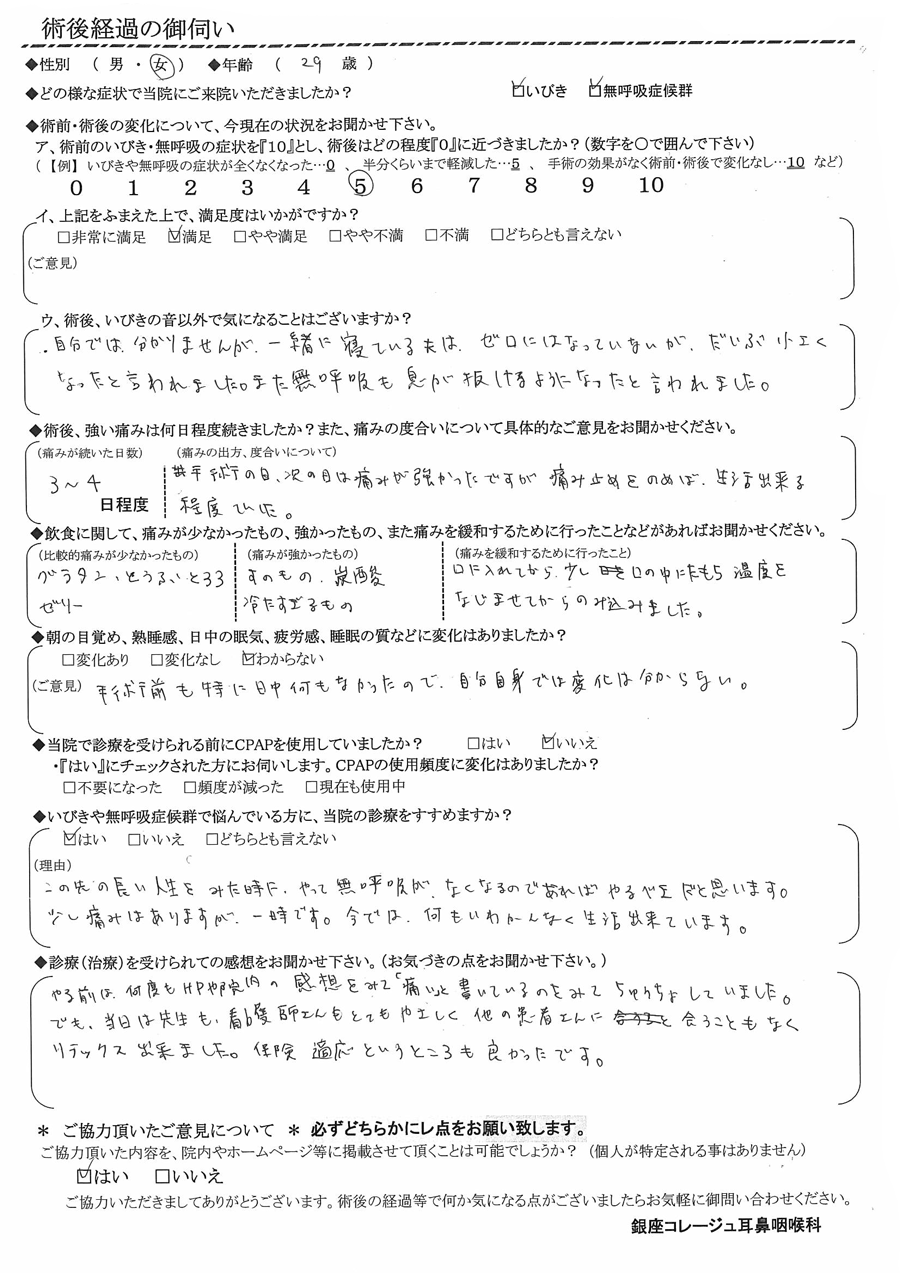 術後経過の御伺い
◆性別 ( 男 ・ 女 ) ◆年齢 ( 29 歳 )
◆どの様な症状で当院にご来院いただきましたか? ☑いびき ☑無呼吸症候群
◆術前・術後の変化について、今現在の状況をお聞かせ下さい。
ア、術前のいびき・無呼吸の症状を『10』とし、術後はどの程度『0』に近づきましたか?(数字を○で囲んで下さい)
(【例】いびきや無呼吸の症状が全くなくなった…0 、 半分くらいまで軽減した…5 、 手術の効果がなく術前・術後で変化なし…10 など)
0 1 2 3 4 5 6 7 8 9 10
イ、上記をふまえた上で、満足度はいかがですか?
□非常に満足 ☑満足 □やや満足 □やや不満 □不満 □どちらとも言えない
(ご意見)
ウ、術後、いびきの音以外で気になることはございますか?
・自分では分かりませんが、一緒に寝ている夫は、ゼロにはなっていないが、だいぶ小さく
なったと言われました。また無呼吸も息が抜けるようになったと言われました。
◆術後、強い痛みは何日程度続きましたか?また、痛みの度合いについて具体的なご意見をお聞かせください。
(痛みが続いた日数) (痛みの出方、度合いについて)
3～4 手術の日、次の日は痛みが強かったですが痛み止めをのめば、生活出来る
日程度 程度でした。
◆飲食に関して、痛みが少なかったもの、強かったもの、また痛みを緩和するために行ったことなどがあればお聞かせください。
(比較的痛みが少なかったもの) (痛みが強かったもの) (痛みを緩和するために行ったこと)
グラタン、とうふ、とろろ すのもの、炭酸 口に入れてから、少し口の中にためて温度を
ゼリー 冷たすぎるもの なじませてからのみ込みました。
◆朝の目覚め、熟睡感、日中の眠気、疲労感、睡眠の質などに変化はありましたか?
□変化あり □変化なし ☑わからない
(ご意見) 手術前も特に日中何もなかったので、自分自身では変化は分からない。
◆当院で診療を受けられる前にCPAPを使用していましたか? □はい ☑いいえ
・『はい』にチェックされた方にお伺いします。CPAPの使用頻度に変化はありましたか?
□不要になった □頻度が減った □現在も使用中
◆いびきや無呼吸症候群で悩んでいる方に、当院の診療をすすめますか?
☑はい □いいえ □どちらとも言えない
(理由)
この先の長い人生をみた時に、やって無呼吸が、なくなるのであればやるべきだと思います。
少し痛みはありますが、一時です。今では、何もいわかんなく生活出来ています。
◆診療(治療)を受けられての感想をお聞かせ下さい。(お気づきの点をお聞かせ下さい。)
やる前は、何度もHPや院内の感想をみて「痛い」と書いているのをみてちゅうちょしていました。
でも、当日は先生も、看護師さんもとてもやさしく他の患者さんに会うこともなく
リラックス出来ました。保険適応というところも良かったです。
＊ ご協力頂いたご意見について ＊ 必ずどちらかにレ点をお願い致します。
ご協力頂いた内容を、院内やホームページ等に掲載させて頂くことは可能でしょうか? (個人が特定される事はありません)
☑はい □いいえ
ご協力いただきましてありがとうございます。術後の経過等で何か気になる点がございましたらお気軽に御問い合わせください。
銀座コレージュ耳鼻咽喉科